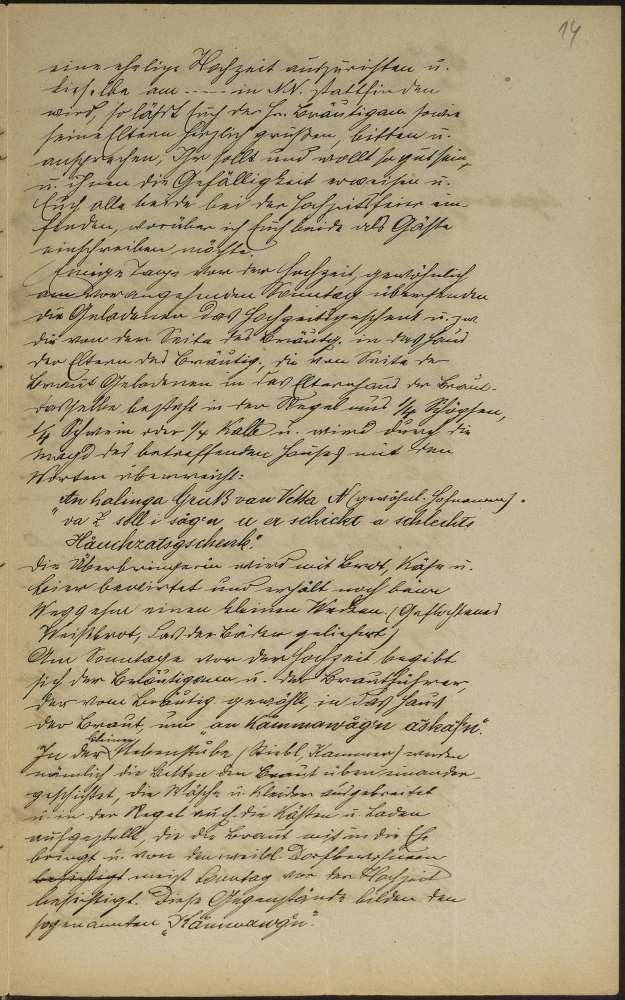 14
eine ehrliche Hochzeit auszurichten u.
dieselbe am ---- in N.N. stattfinden
wird, so läßt Euch der Hr. Bräutigam sowie
seine Eltern herzlich grüßen, bitten u.
ansprechen, Ihr sollt und wollt so gut sein,
u. ihnen die Gefälligkeit erweisen u.
Euch alle beide bei der Hochzeitsfeier ein-
finden, worüber ich Euch beide als Gäste
einschreiben möchte.
Einige Tage vor der Hochzeit, gewöhnlich
am vorangehenden Sonntag übersenden
die Geladenen das Hochzeitsgeschenk u. zw.
die von der Seite des Bräutig. in das Haus
der Eltern des Bräutig., die von Seite der
Braut Geladenen in das Elternhaus der Braut.
Dasselbe besteht in der Regel aus 1/4 Schöpsen,
1/4 Schwein oder 1/4 Kalb u. wird durch die
Magd des betreffenden Hauses mit den
Worten überreicht:
"An halinga Gruß van Vetta N (gewöhnl. Hofname).
va Z soll i sog'n u er schickt a schlechts
Håuchzatsgschenk."
Die Überbringerin wird mit Brot, Käse u.
Bier bewirtet und erhält noch beim
Weggehn einen kleinen Wecken. (Geflochtenes
Weißbrot, das der Bäcker geliefert)
Am Sonntage vor der Hochzeit begibt
sich der Bräutigam u. der Brautführer,
der vom Bräutig. gewählt, in das Haus
der Braut, um "an Kammawåg'n åskåf'n".
In der kleinen Nebenstube (Stiebl, Kammer) werden
nämlich die Betten der Braut übereinander-
geschichtet, die Wäsche u. Kleider ausgebreitet
u. in der Regel auch die Kästen u. Laden
aufgestellt, die die Braut mit in die Ehe
bringt u. von den weibl. Dorfbewohnern
besichtigt meist Sonntag vor der Hochzeit
besichtigt. Diese Gegenstände bilden den
sogenannten "Kammawåg'n".